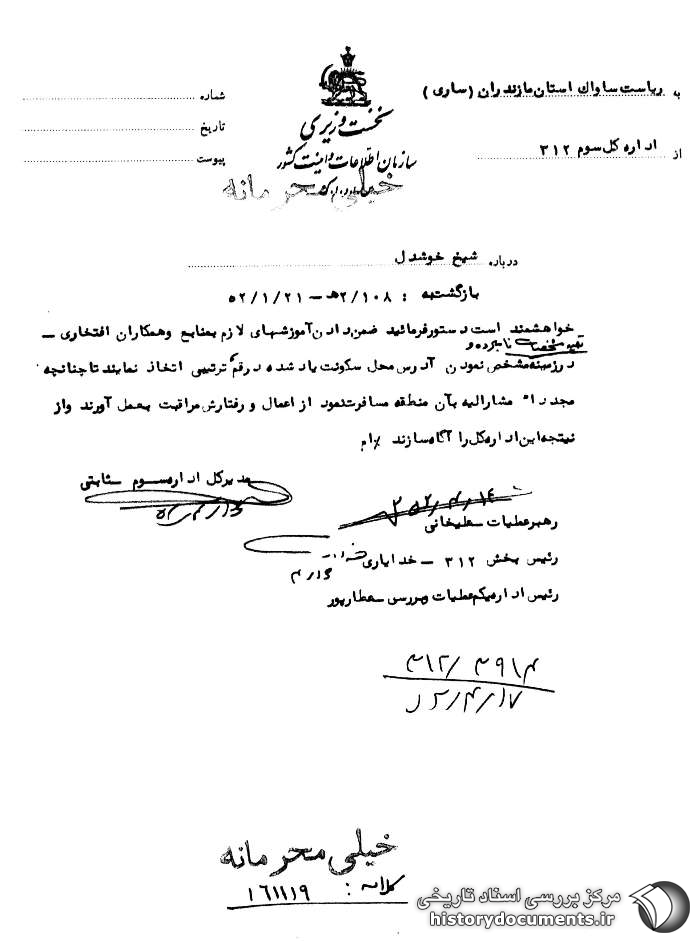 به ریاست ساواک استان مازندران (ساری)
از اداره کل سوم ۳۱۲
نخست وزیری
سازمان اطلاعات و امنیت کشور
خیلی محرمانه
شماره
تاریخ
پیوست
درباره شیخ خوشدل
بازگشت به : ۲/۱۰۸هـ – ۵۲/۱/۲۱
خواهشمند است دستور فرمائید ضمن دادن آموزشهای لازم بمنابع و همکاران افتخاری –
تهیه مشخصات نامبرده و
در زمینه مشخص نمودن آدرس محل سکونت یاد شده در قم ترتیبی اتخاذ نمایند تا چنانچه
مجددا مشارالیه بآن منطقه مسافرت نمود از اعمال و رفتارش مراقبت بعمل آورند و از
نیتجه این اداره کل را آگاه سازند
مدیر کل اداره سوم – ثابتی
رهبر عملیات – علیخانی
رئیس بخش ۳۱۲ – خدایاری
رئیس اداره یکم عملیات و بررسی – عطارپور
۳۱۲/۳۹۱۴
۵۲/۴/۱۷
خیلی محرمانه
کلاسه : ۱۶۱۱۱۹
مرکز بررسی اسناد تاریخی
historydocuments.ir